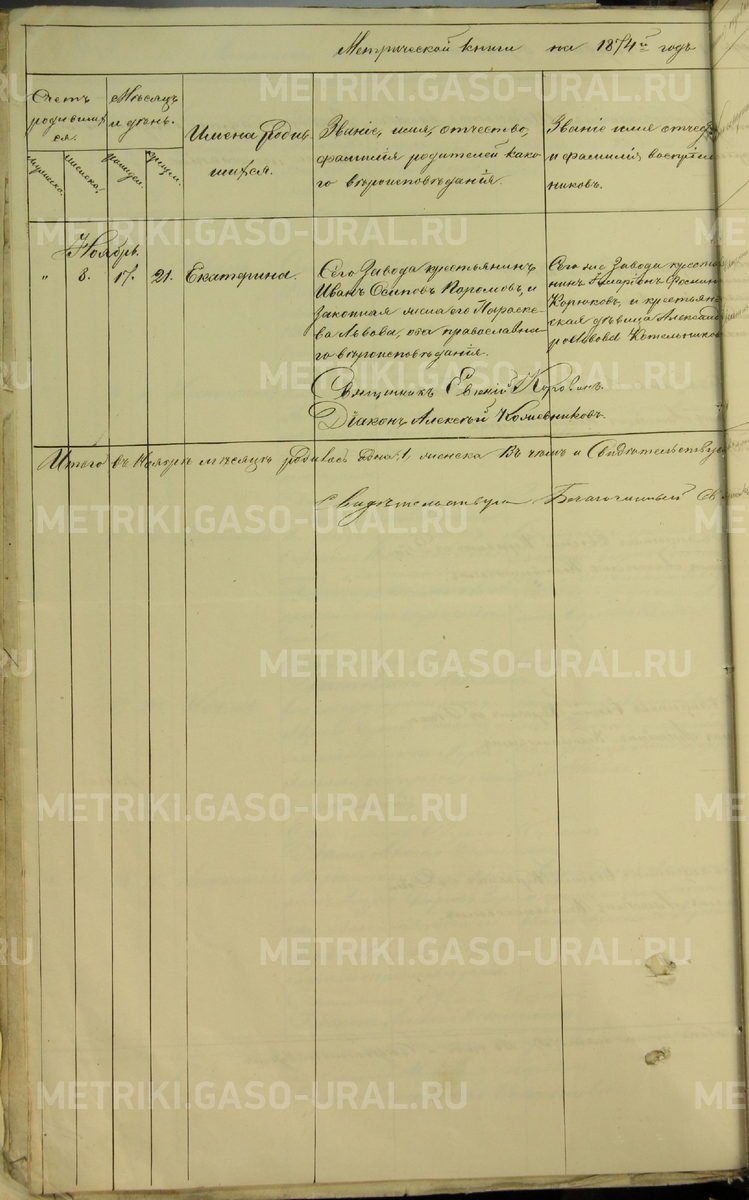 Метрической книги на 1874й годъ
Счетъ родившихся.
Мѣсяцъ и день.
Имена родившихся.
Званіе, имя, отчество, фамилія родителей какого вѣроисповѣданія.
Званіе имя отчес
и фамилія, воспрiем
никовъ.
мужеска. женска. рожден. крещен.
Ноябрь.
" 8. 17. 21. Екатерина.
Сего Завода крестьянинъ
Иванъ Осиповъ Паромовъ, и
законная жена его Параске-
ва Львова, оба православна-
го вѣроисповѣданія.
Сего же Завода крестья
нинъ Фомин
Корюковъ, и крестьян
ская дѣвица Алексан
Львова Котельников
Священникъ Евгеній Коровинъ.
Діаконъ Алексѣй Кожевниковъ.
Итого въ Ноябрѣ мѣсяцѣ родилась одна, 1, женска Въ чемъ и Свидѣтельствуе
Свидѣтельствую Благочинный Св
METRIKI.GASO-URAL.RU